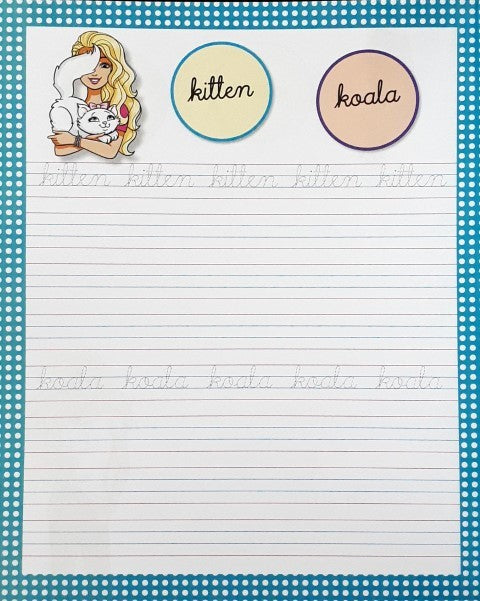 kitten
koala
kitten kitten kitten kitten kitten
koala koala koala koala koala